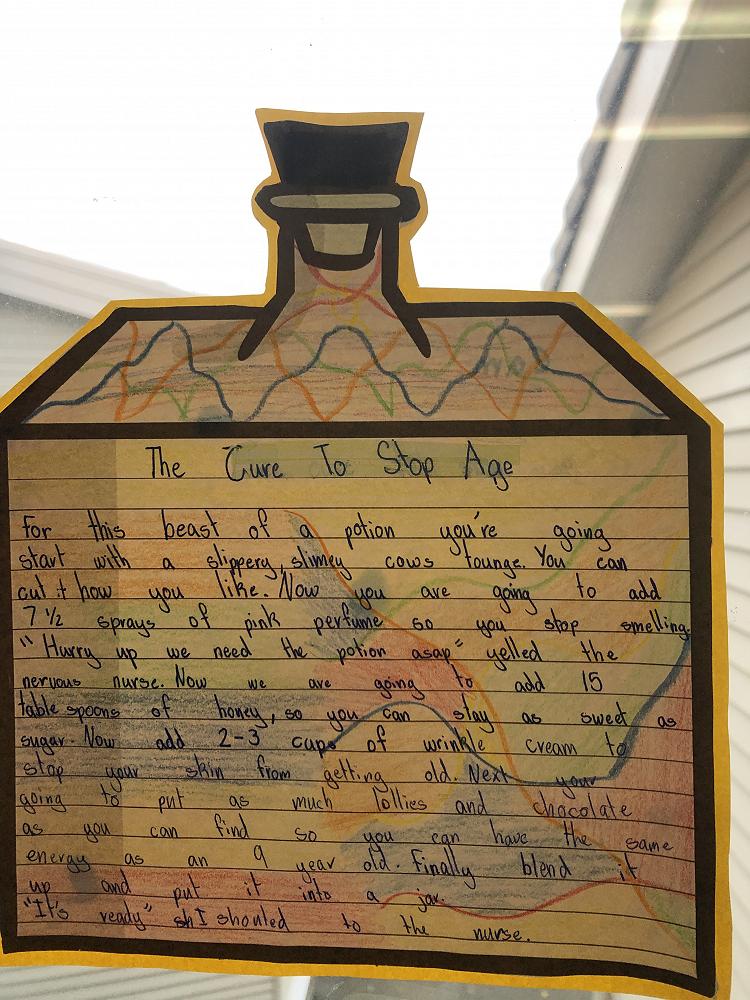 The Cure To Stop Age
For this beast of a potion you're going
start with a slippery, slimey cows tounge. You can
cut it how you like. Now you are going to add
7 1/2 sprays of pink perfume so you stop smelling.
"Hurry up we need the potion asap" yelled the
nervous nurse. Now we are going to add 15
table spoons of honey, so you can stay as sweet as
sugar. Now add 2-3 cups of wrinkle cream to
stop your skin from getting old. Next your
going to put as much lollies and chocolate
as you can find so you can have the same
energy as an 9 year old. Finally blend it
up and put it into a jar.
"It's ready" I shouted to the nurse.